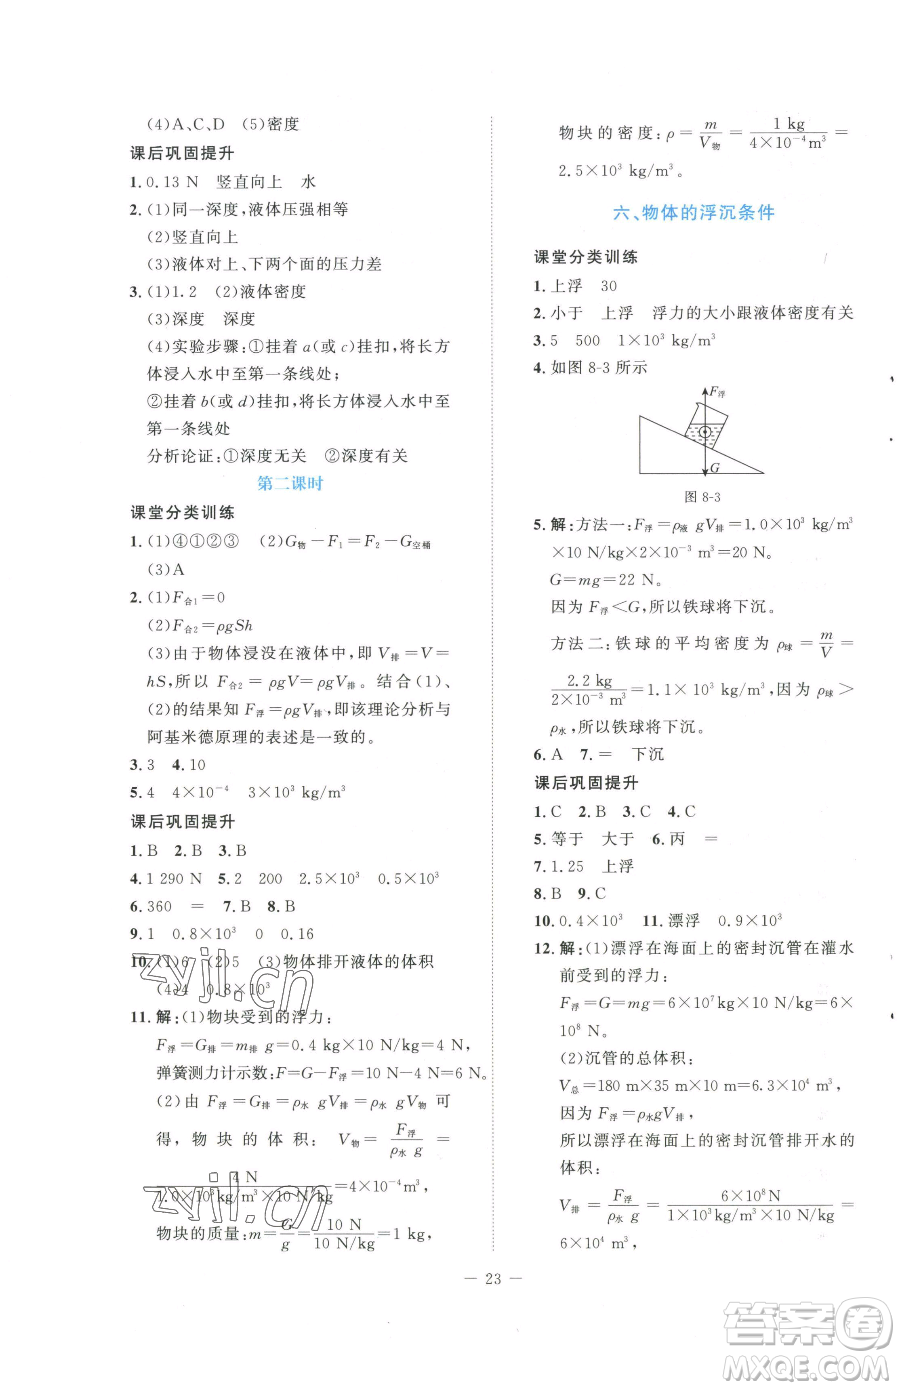 (4)A、C、D (5)密度
课后巩固提升
1. 0.13 N 竖直向上 水
2. (1)同一深度,液体压强相等
(2)竖直向上
(3)液体对上、下两个面的压力差
3. (1)1.2 (2)液体密度
(3)深度 深度
(4)实验步骤:①挂着 a(或 c)挂扣,将长方
体浸入水中至第一条线处;
②挂着 b(或 d)挂扣,将长方体浸入水中至
第一条线处
分析论证:①深度无关 ②深度有关
第二课时
课堂分类训练
1. (1)④①②③ (2)G物－F₁＝F₂－G空桶
(3)A
2. (1)F合1＝0
(2)F合2＝ρgSh
(3)由于物体浸没在液体中,即 V排＝V＝
hS,所以 F合2＝ρgV＝ρgV排。结合(1)、
(2)的结果知 F浮＝ρgV排,即该理论分析与
阿基米德原理的表述是一致的。
3. 3 4. 10
5. 4 4×10⁻⁴ 3×10³ kg/m³
课后巩固提升
1. B 2. B 3. B
4. 1 290 N 5. 2 200 2.5×10³ 0.5×10³
6. 360 ＝ 7. B 8. B
9. 1 0.8×10³ 0 0.16
10. (1)6 (2)5 (3)物体排开液体的体积
(4)4 0.8×10³
11. 解:(1)物块受到的浮力:
F浮＝G排＝m排 g＝0.4 kg×10 N/kg＝4 N
弹簧测力计示数:F＝G－F浮＝10 N－4 N＝6 N。
(2)由 F浮＝G排＝ρ水 gV排＝ρ水 gV物 可
得,物块的体积: V物＝F浮/ρ水 g＝
4 N/1.0×10³ kg/m³×10 N/kg＝4×10⁻⁴ m³,
物块的质量:m＝G/g＝10 N/10 N/kg＝1 kg,
物块的密度:ρ＝m/V物＝1 kg/4×10⁻⁴ m³＝
2.5×10³ kg/m³。
六、物体的浮沉条件
课堂分类训练
1. 上浮 30
2. 小于 上浮 浮力的大小跟液体密度有关
3. 5 500 1×10³ kg/m³
4. 如图 8-3 所示
F浮
G
图 8-3
5. 解:方法一:F浮＝ρ液 gV排＝1.0×10³ kg/m³
×10 N/kg×2×10⁻³ m³＝20 N。
G＝mg＝22 N。
因为 F浮＜G,所以铁球将下沉。
方法二:铁球的平均密度为 ρ球＝m/V＝
2.2 kg/2×10⁻³ m³＝1.1×10³ kg/m³,因为 ρ球＞
ρ水,所以铁球将下沉。
6. A 7. ＝ 下沉
课后巩固提升
1. C 2. B 3. C 4. C
5. 等于 大于 6. 丙 ＝
7. 1.25 上浮
8. B 9. C
10. 0.4×10³ 11. 漂浮 0.9×10³
12. 解:(1)漂浮在海面上的密封沉管在灌水
前受到的浮力:
F浮＝G＝mg＝6×10⁷kg×10 N/kg＝6×
10⁸ N。
(2)沉管的总体积:
V总＝180 m×35 m×10 m＝6.3×10⁴ m³,
因为 F浮＝ρ水gV排,
所以漂浮在海面上的密封沉管排开水的
体积:
V排＝F浮/ρ水 g＝6×10⁸N/1×10³kg/m³×10 N/kg＝
6×10⁴ m³,
— 23 —
zyjl.cn
zyjl.cn
答案圈
MXQE.COM